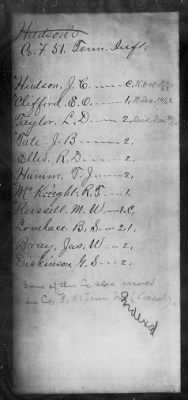 Hudson's
Co. F. 51. Tenn. Inft.
Hudson, J. C. — C, K.
Clifford, E. O. — 1,
Taylor, L. D — 2,
Tate, J. B — 2,
Ellis, R. D — 2,
Hamm, T. J — 2,
McKnight, R. F — 1,
Russell, M. W — 1, C,
Lovelace, B. S — 21
Bray, Jas, W — 2,
Dickinson, G. S — 2,
Some of this Co also served
in Co. F, 51 Tenn